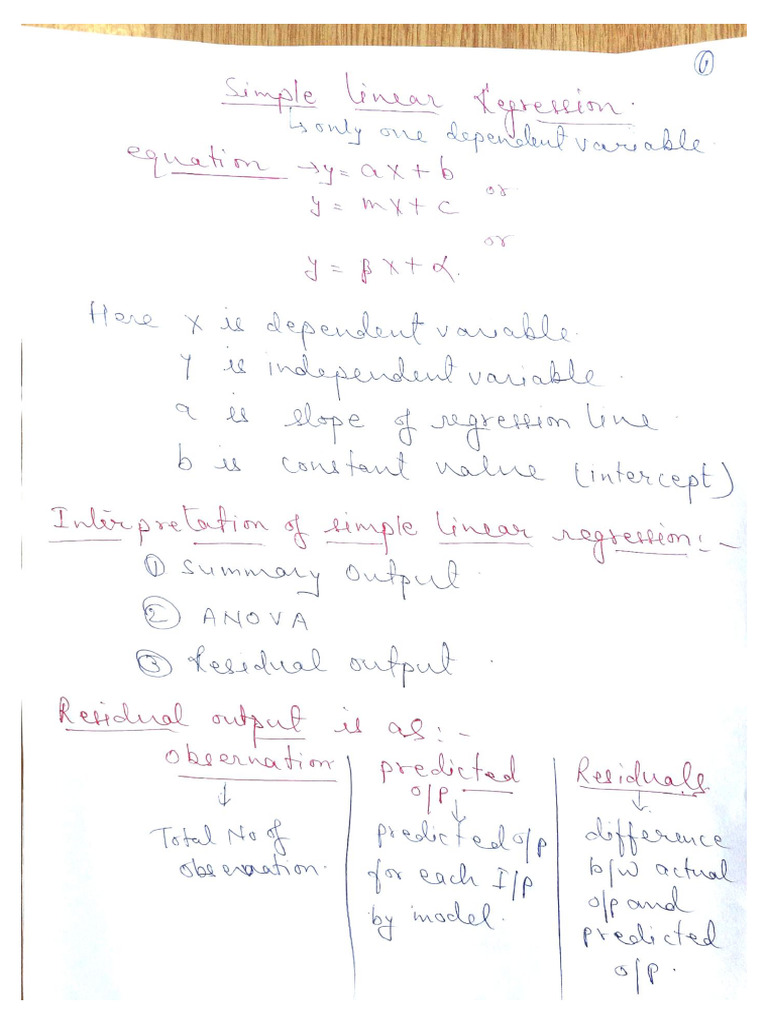 ①
Simple linear Regression.
↳ only one dependent variable.
equation → y = ax + b
or
y = mx + c
or
y = βx + α.
Here x is dependent variable.
y is independent variable.
a is slope of regression line.
b is constant value (intercept)
Interpretation of simple linear regression:-
① Summary output.
② ANOVA
③ Residual output.
Residual output is as:-
observation | predicted o/p | Residuals
↓ ↓ ↓
Total No of observation. | predicted o/p for each I/p by model. | difference b/w actual o/p and predicted o/p.